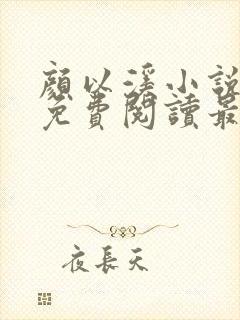 顏以溪小說
免費閱讀最
夜長天